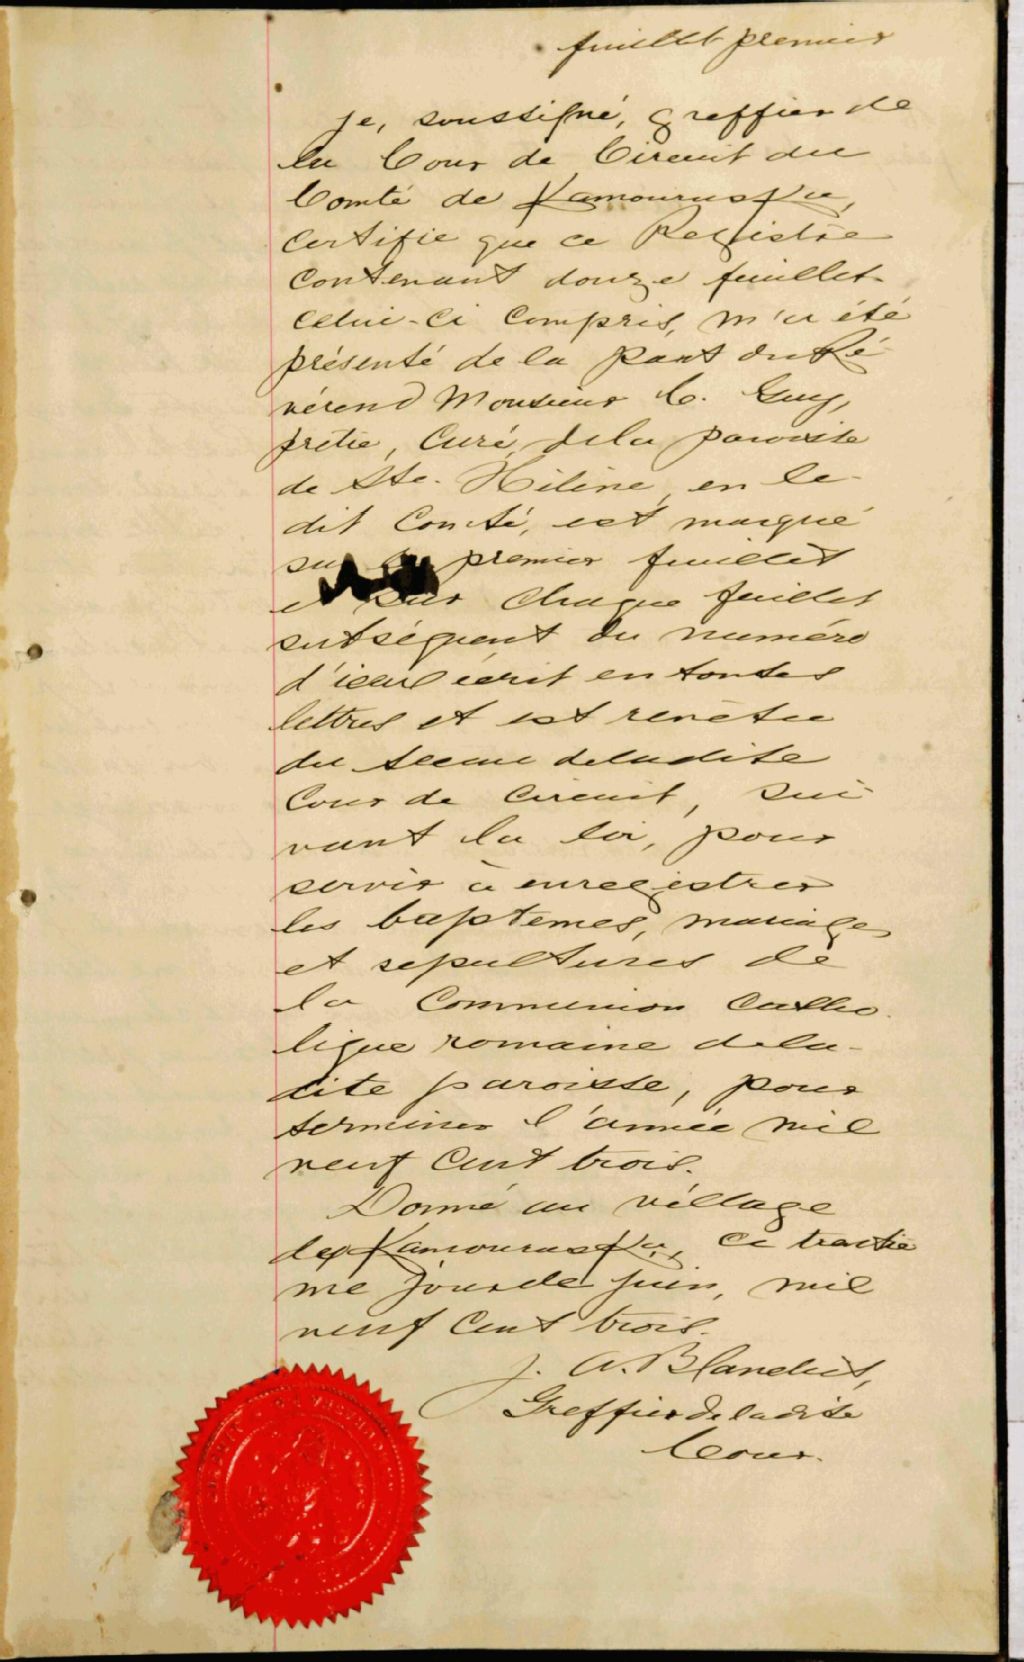 feuillet premier
Je, soussigné, greffier de
la Cour de Circuit du
Comté de Kamouraska,
certifie que ce Registre
contenant douze feuillets
celui-ci compris, m'a été
présenté de la part du Ré
vérend Monsieur C. Guy,
prêtre, Curé de la paroisse
de Ste. Hélène, en le-
dit Comté, est marqué
sur premier feuillet
et sur chaque feuillet
subséquent du numéro
d'icelui écrit en toutes
lettres et est revêtu
du sceau de ladite
Cour de Circuit, sui-
vant la loi, pour
servir à enregistrer
les baptêmes, mariages
et sépultures de
la Communion Catho
lique romaine de la-
dite paroisse, pour
terminer l'année mil
neuf cent trois.
Donné au village
de Kamouraska, ce trentiè
me jour de juin, mil
neuf cent trois.
J. A. Blanchet,
Greffier de ladite
Cour.